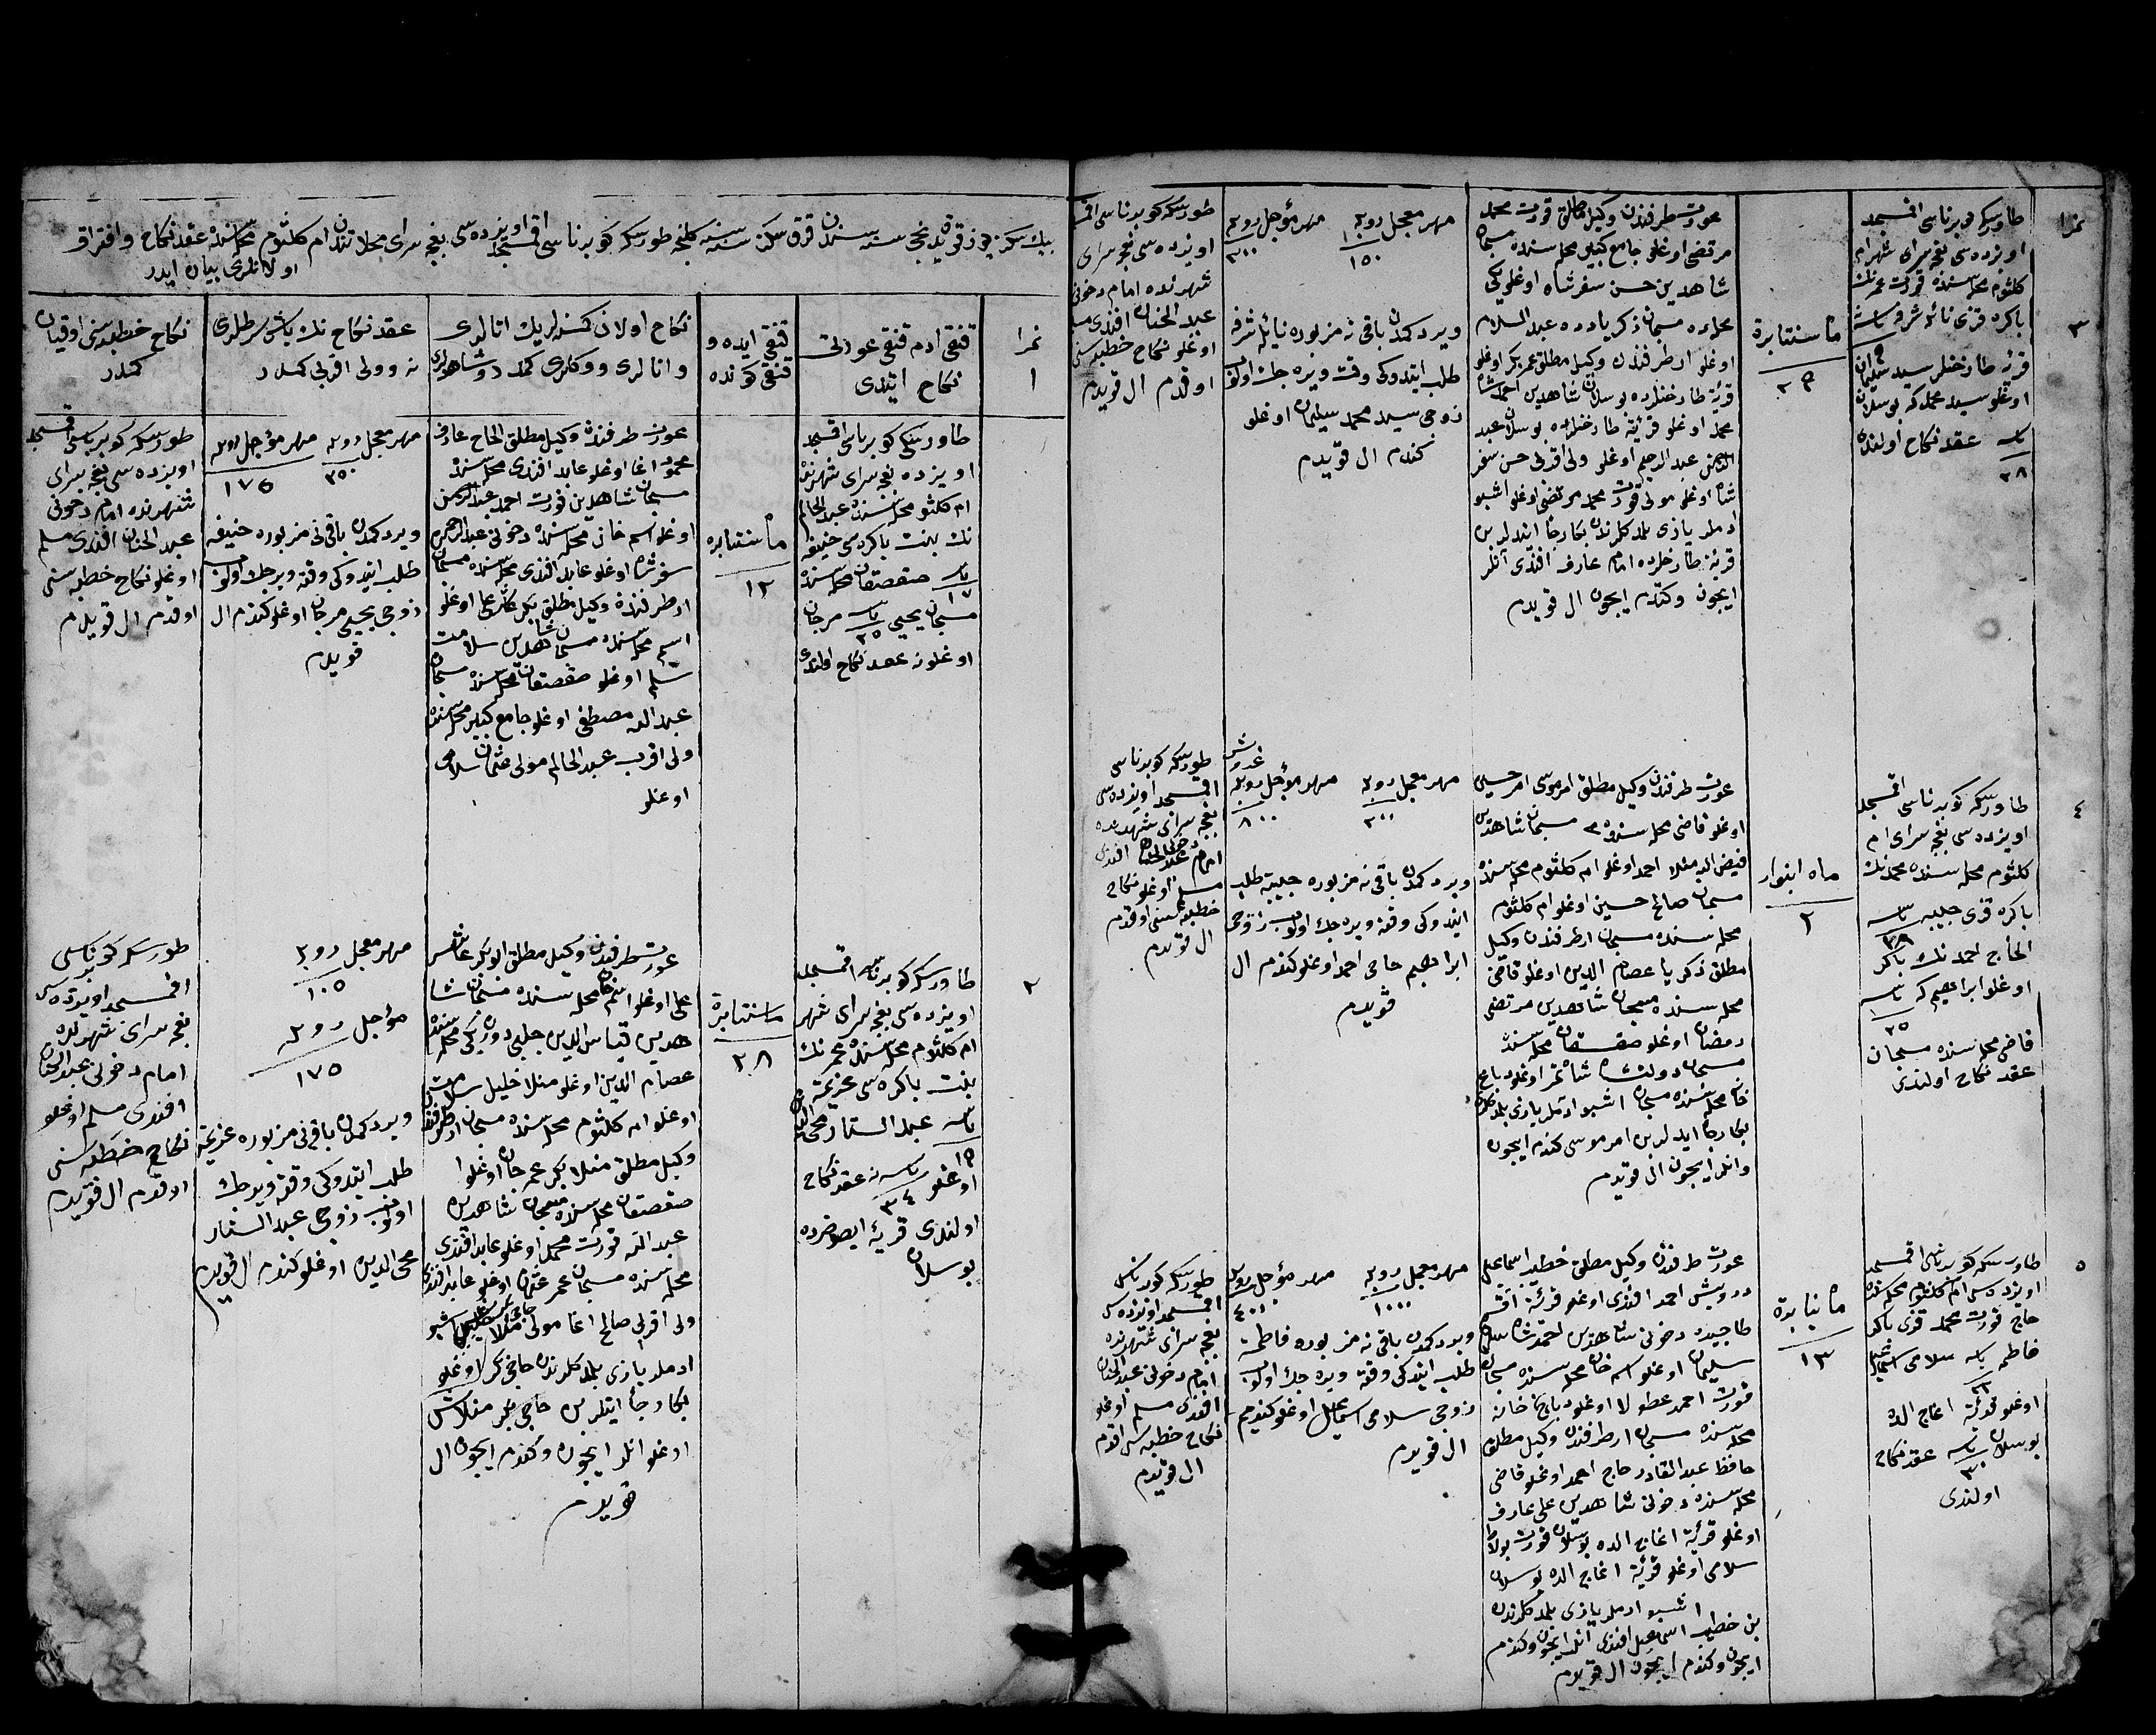 بیك سكز یوز قرقنجی سنه سندن قرق سكز سنه سنه كلنجه طورسكه كوبرناسی اقمسجد اویزده سی بغچه سرای محلاتندن ام كلثوم محله سنده عقد نكاح وافتراق
اولانلری بیان ایدر
نمرا
١
قنغی ادم قنغی عورتی
نكاح ایتدی
قنغی ایده و
قنغی كونده
نكاح اولان كسنه لریك اتالری
وانالری ووكللری كمدر وشاهدلری
عقد نكاح نك باش شرطلری
نه وولی اقربی كمدر
نكاح خطبه سنی اوقیان
كمدر
طاورسكی كوبرناسی اقمسجد
اویزده سی بغچه سرای شهرنده
ام كلثوم محله سنده عبد الحالم
نك بنت باكره سی حنیفه
یاسه
١٧
صنقصتقان محله سنده
مسجان یحیی یاسه مرجان
٢٥
اوغلونه عقد نكاح اولندی
ماه سنتابره
١٢
عورت طرفندن وكیل مطلق الحاج عارف
محمود اغا اوغلو عابد افندی محله سنده
مسجان شاهدین قورت احمد عبد الرحمن
اوغلو اسم خان محله سنده دخونی عبد الرحیم
سفرشاه اوغلو عابد افندی محله سنده مسجان
ار طرفندن وكیل مطلق بكر علی اوغلو
اسم محله سنده مسجان شاهدین سلامت
سلیم اوغلو صنقصتقان محله سنده مسجان
عبد الله مصطفی اوغلو جامع كبیر محله سنده
ولی اقرب عبد الحالم مولی عثمان سلامی
اوغلو
مهر معجل روبله
٢٥٠
مهر مؤجل روبله
١٧٥
ویردكمدن باقی نی مزبوره حنیفه
طلب ایتدوكی وقته ویرجك اولوب
زوجی یحیی مرجان اوغلو كندم ال
قویدم
طورسكه كوبرناسی اقمسجد
اویزده سی بغچه سرای
شهرنده امام دخونی
عبد الحنان افندی مسلم
اوغلو نكاح خطبه سنی
اوقدم ال قویدم
٢
طاورسكه كوبرناسی اقمسجد
اویزده سی بغچه سرای شهر
ام كلثوم محله سنده عمرنك
بنت باكره سی عزیزه
یاسه عبد الستار محی الدین
١٩
اوغلو یاسه نه عقد نكاح
٣٤
اولندی قریهٔ ایصوخرده
بوسلان
ماه سنتابره
٢٨
عورت طرفندن وكیل مطلق ابو بكر عاشر
علی اوغلو اسم خان محله سنده مسجان شا
هدین قیاس الدین چلبی
عصام الدین اوغلو منلا خلیل سلامت
اوغلو ام كلثوم محله سنده مسجان ار طرفندن
وكیل مطلق منلا بكر عمرجان اوغلو
صنقصتقان محله سنده مسجان شاهدین
عبد الله قورت محمد اوغلو عابد افندی
محله سنده مسجان عمر عثمان اوغلو عابد افندی
ولی اقربی صالح اغا مولی منلا اشبو
ادملر یازی بلمدكلرندن حاجی بكر اوغلو
بكا رجا ایتدلر بن حاجی بكر منلاش
اوغلو انلر ایچون وكندم ایچون ال
قویدم
مهر معجل روبله
١٠٥
مؤجل روبله
١٧٥
ویردكمدن باقی نی مزبوره عزیزه
طلب ایتدوكی وقته ویرجك
اولوب زوجی عبد الستار
محی الدین اوغلو كندم ال قویدم
طورسكه كوبرناسی
اقمسجد اویزده سی
بغچه سرای شهرنده
امام دخونی عبد الحنان
افندی مسلم اوغلو
نكاح خطبه سنی
اوقدم ال قویدم
نمرا
٣
طاورسكه كوبرناسی اقمسجد
اویزده سی بغچه سرای شهر ام
كلثوم محله سنده قورت عمرنك
باكره قزی نائله شرفه یاسه
قریهٔ طارخنلر سید سلیمان
اوغلو سید محمدكه بوسلان
یاسه عقد نكاح اولندی
٢٨
ماه سنتابره
٢٩
عورت طرفندن وكیل مطلق قورت محمد
مرتضی اوغلو جامع كبیر محله سنده مسجان
شاهدین حسن سفرشاه اوغلو یكی
محله ده مسجان ذكریا دده عبد السلام
اوغلو ار طرفندن وكیل مطلق عمر بكر اوغلو
قریهٔ طارخنلرده بوسلان شاهدین احمد شاه
محمد اوغلو قریهٔ طارخنلرده بوسلان عبد
الرحمن عبد الرحیم اوغلو ولی اقربی حسن سفر
شاه اوغلو مولی قورت محمد مرتضی اوغلو اشبو
ادملر یازی بلمدكلرندن بكا رجا ایتدلر بن
قریهٔ طارخلرده امام عارف افندی انلر
ایچون وكندم ایچون ال قویدم
مهر معجل روبله
١٥٠
مهر مؤجل روبله
٣٠٠
ویردكمدن باقی نه مزبوره نائله شرفه
طلب ایتدوكی وقت ویره جك اولوب
زوجی سید محمد سلیمان اوغلو
كندم ال قویدم
طورسكه كوبرناسی اقمسجد
اویزده سی بغچه سرای
شهرنده امام دخونی
عبد الحنان افندی مسلم
اوغلو نكاح خطبه سنی
اوقدم ال قویدم
٤
طاورسكه كوبرناسی اقمسجد
اویزده سی بغچه سرای ام
كلثوم محله سنده محمدنك
باكره قزی حبیبه یاسه
١٩
الحاج احمدنك باكر
اوغلو ابراهیمكه یاسه
٢٥
قاضی محله سنده مسجان
عقد نكاح اولندی
ماه ینوار
٢
عورت طرفندن وكیل مطلق امرموسی امرحسین
اوغلو قاضی محله سنده مسجان شاهدین
فیض الله منلا احمد اوغلو ام كلثوم محله سنده
مسجان صالح حسین اوغلو ام كلثوم
محله سنده مسجان ار طرفندن وكیل
مطلق ذكریا عصام الدین اوغلو قاضی
محله سنده مسجان شاهدین مرتضی
رمضان اوغلو صنقصتقان محله سنده
مسجان دولتشاه شاهتمر اوغلو دباغ
خانه محله سنده مسجان اشبو ادملر یازی بلمدكلرندن
بكا رجا ایدلر بن امرموسی كندم ایچون
وانلر ایچون ال قویدم
مهر معجل روبله
٣٠٠
غروش
مهر مؤجل روبله
٨٠٠
ویردكمدن باقی نه مزبوره حبیبه طلب
ایتدوكی وقته ویره جك اولوب زوجی
ابراهیم حاجی احمد اوغلو كندم ال
قویدم
طورسكه كوبرناسی
اقمسجد اویزده سی
بغچه سرای شهرنده
امام دخونی عبد الحنان افندی
مسلم اوغلو نكاح
خطبه سنی اوقدم
ال قویدم
٥
طاورسكه كوبرناسی اقمسجد
اویزده سی ام كلثوم محله سنده
حاج قورت محمد قزی باكره
فاطمه یاسه سلامی اسماعیل
٢٢
اوغلو قریهٔ اغاج الده
بوسلان یاسه عقد نكاح
٣٠
اولندی
ماه نیابره
١٣
عورت طرفندن وكیل مطلق خطیب اسماعیل
درویش احمد افندی اوغلو قریهٔ
دخونی شاهدین احمد شاه
سلیمان اوغلو اسم خان محله سنده مسجان
قورت احمد عطولا اوغلو دباغ خانه
محله سنده مسجان ار طرفندن وكیل مطلق
حافظ عبد القادر حاج احمد اوغلو قاضی
محله سنده دخونی شاهدین علی عارف
اوغلو قریهٔ اغاج الده بوسلان قورت بولاط
سلامی اوغلو قریهٔ اغاج الده بوسلان
اشبو ادملر یازی بلمدكلرندن
بن خطیب اسماعیل افندی انلر ایچون وكندم
ایچون وكندم ایچون ال قویدم
مهر معجل روبله
١٠٠٠
مهر مؤجل روبله
ویردكمدن باقی نه مزبوره فاطمه
طلب ایتدكی وقته ویره جك اولوب
زوجی سلامی اسماعیل اوغلو كندیم
ال قویدم
طورسكه كوبرناسی
اقمسجد اویزده سی
بغچه سرای شهرنده
امام دخونی عبد الحنان
افندی مسلم اوغلو
نكاح خطبه سی اقدم
ال قویدم